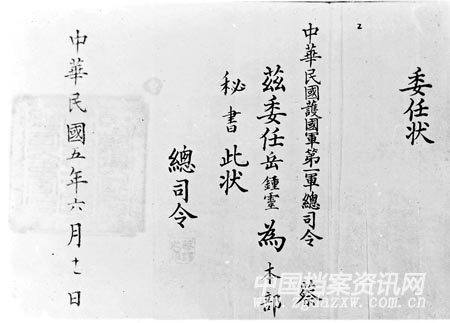 2
委任状
中華民國護國軍第一軍總司令 蔡
茲委任岳鍾靈為本部
秘書此状
總司令
中華民國五年六月十一日
中国档案资讯网
www.zgdazxw.com.cn